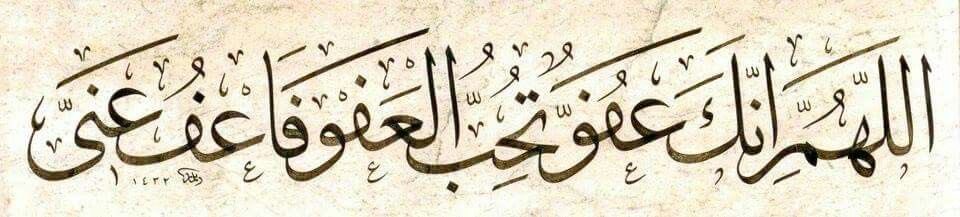 اللَّهُمَّ إِنَّكَ عَفُوٌّ تُحِبُّ الْعَفْوَ فَاعْفُ عَنِّي
١٤٣٢